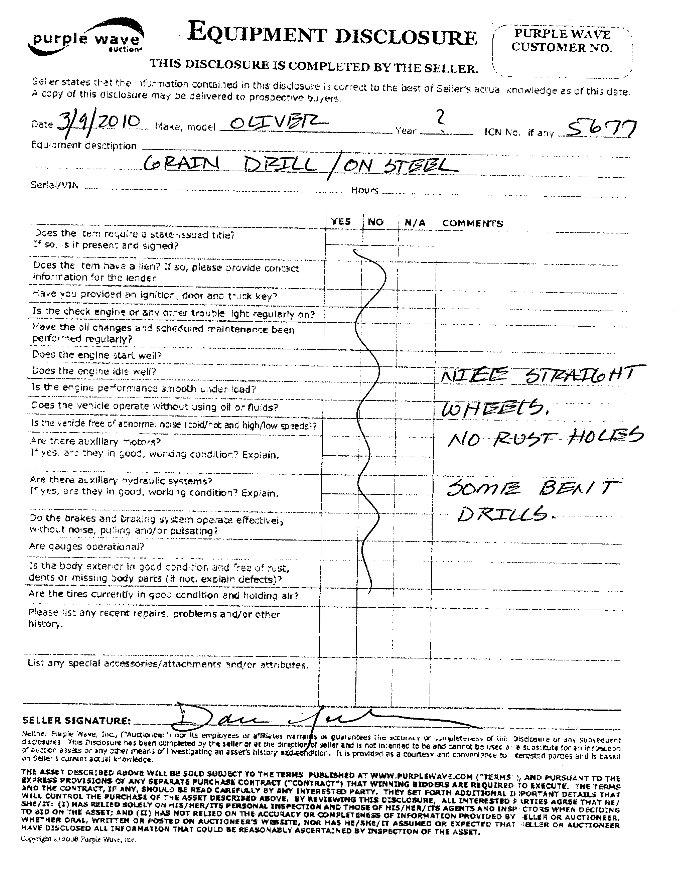 purple wave
auction
EQUIPMENT DISCLOSURE
PURPLE WAVE
CUSTOMER NO.
THIS DISCLOSURE IS COMPLETED BY THE SELLER.
Seller states that the information contained in this disclosure is correct to the best of Seller's actual knowledge as of this date.
A copy of this disclosure may be delivered to prospective buyers.
Date 3/9/2010 Make, model OLIVER Year ? ICN No. if any 5677
Equipment description
GRAIN DRILL / ON STEEL
Serial/VIN Hours
YES NO N/A COMMENTS
Does the item require a state-issued title?
If so, is it present and signed?
Does the item have a lien? If so, please provide contact
information for the lender
Have you provided an ignition, door and truck key?
Is the check engine or any other trouble light regularly on?
Have the oil changes and scheduled maintenance been
performed regularly?
Does the engine start well?
Does the engine idle well?
NICE STRAIGHT
Is the engine performance smooth under load?
Does the vehicle operate without using oil or fluids?
WHEELS.
Is the vehicle free of abnormal noise (cold/hot and high/low speeds)?
Are there auxiliary motors?
NO RUST HOLES
If yes, are they in good, working condition? Explain.
Are there auxiliary hydraulic systems?
SOME BENT
If yes, are they in good, working condition? Explain.
Do the brakes and braking system operate effectively
DRILLS.
without noise, pulling and/or pulsating?
Are gauges operational?
Is the body exterior in good condition and free of rust,
dents or missing body parts (if not, explain defects)?
Are the tires currently in good condition and holding air?
Please list any recent repairs, problems and/or other
history.
List any special accessories/attachments and/or attributes.
SELLER SIGNATURE:
Neither Purple Wave, Inc. ("Auctioneer") nor its employees or affiliates warrants or guarantees the accuracy or completeness of this Disclosure or any subsequent
disclosures. This Disclosure has been completed by the seller or at the direction of seller and is not intended to be and cannot be used as a substitute for an inspection
of auction assets or any other means of investigating an asset's history and condition. It is provided as a courtesy and convenience to interested parties and is based
on Seller's current actual knowledge.
THE ASSET DESCRIBED ABOVE WILL BE SOLD SUBJECT TO THE TERMS PUBLISHED AT WWW.PURPLEWAVE.COM ("TERMS"), AND PURSUANT TO THE
EXPRESS PROVISIONS OF ANY SEPARATE PURCHASE CONTRACT ("CONTRACT") THAT WINNING BIDDERS ARE REQUIRED TO EXECUTE. THE TERMS
AND THE CONTRACT, IF ANY, SHOULD BE READ CAREFULLY BY ANY INTERESTED PARTY. THEY SET FORTH ADDITIONAL IMPORTANT DETAILS THAT
WILL CONTROL THE PURCHASE OF THE ASSET DESCRIBED ABOVE. BY REVIEWING THIS DISCLOSURE, ALL INTERESTED PARTIES AGREE THAT HE/
SHE/IT: (I) HAS RELIED SOLELY ON HIS/HER/ITS PERSONAL INSPECTION AND THOSE OF HIS/HER/ITS AGENTS AND INSPECTORS WHEN DECIDING
TO BID ON THE ASSET; AND (II) HAS NOT RELIED ON THE ACCURACY OR COMPLETENESS OF INFORMATION PROVIDED BY SELLER OR AUCTIONEER,
WHETHER ORAL, WRITTEN OR POSTED ON AUCTIONEER'S WEBSITE, NOR HAS HE/SHE/IT ASSUMED OR EXPECTED THAT SELLER OR AUCTIONEER
HAVE DISCLOSED ALL INFORMATION THAT COULD BE REASONABLY ASCERTAINED BY INSPECTION OF THE ASSET.
Copyright 2008 Purple Wave, Inc.